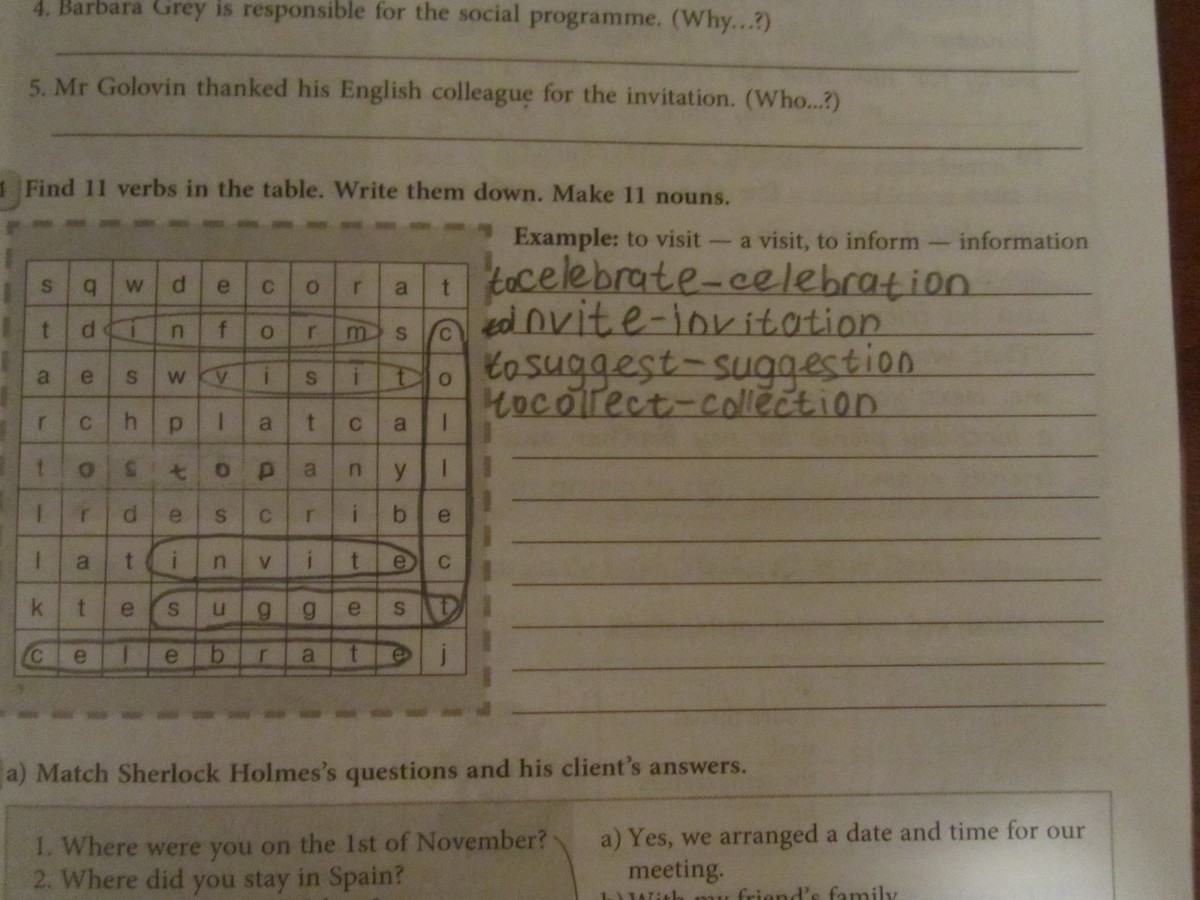 4. Barbara Grey is responsible for the social programme. (Why...?)
5. Mr Golovin thanked his English colleague for the invitation. (Who...?)
Find 11 verbs in the table. Write them down. Make 11 nouns.
Example: to visit — a visit, to inform — information
s q w d e c o r a t
t d i n f o r m s c
a e s w v i s i t o
r c h p l a t c a l
t o s t o p a n y l
l r d e s c r i b e
l a t i n v i t e c
k t e s u g g e s t
c e l e b r a t e j
to celebrate - celebration
to invite - invitation
to suggest - suggestion
to collect - collection
a) Match Sherlock Holmes's questions and his client's answers.
1. Where were you on the 1st of November?
2. Where did you stay in Spain?
a) Yes, we arranged a date and time for our
meeting.
b) With my friend's family